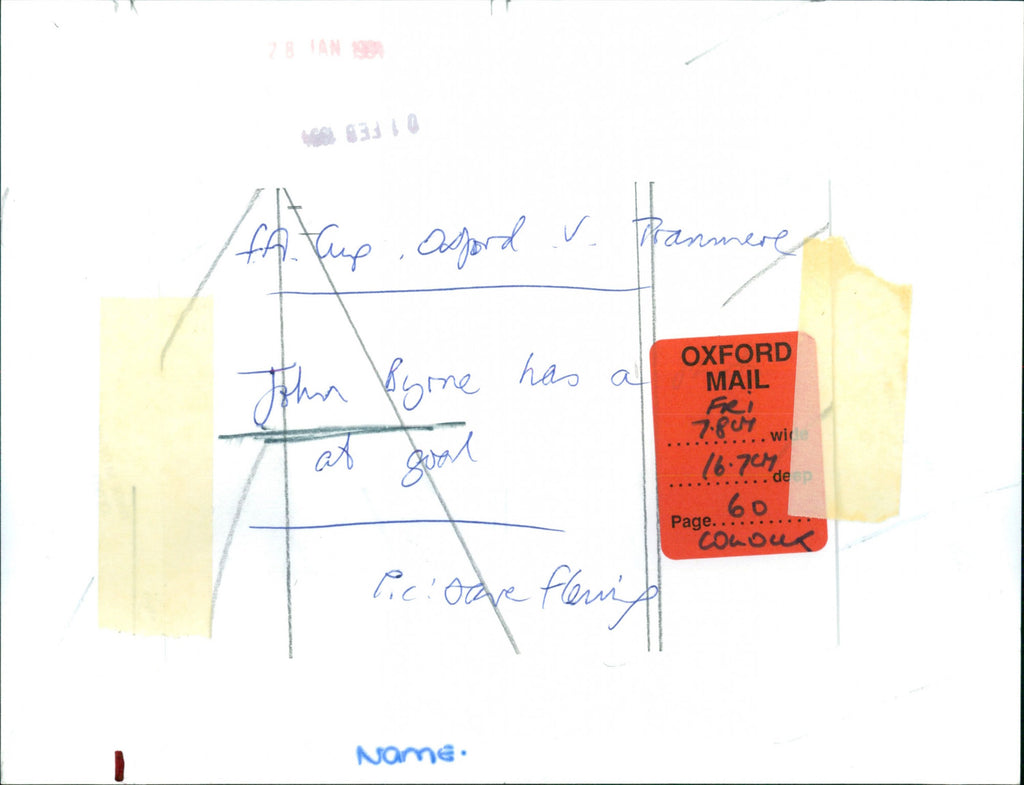 28 JAN 1994
01 FEB 1994
F.A. Cup. Oxford v. Tranmere
John Byrne has a
at goal
Pic: Dave Fleming
OXFORD
MAIL
FRI
7.8CM wide
16.7CM deep
Page 60
COLOUR
Name.